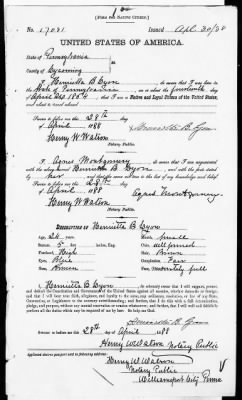 [FORM FOR NATIVE CITIZEN.]
No. 17081 Issued Apl. 30/88
UNITED STATES OF AMERICA.
State of Pennsylvania
County of Lycoming
I, Henrietta B Lyon, do swear that I was born
in the State of Pennsylvania on the fourteenth day
of April A.D. 1854 that I am a Native and Loyal Citizen of the United States,
and about to travel abroad
Sworn to before me this 28th day
of April 1888
Henry W Watson
Notary Public.
I, Agnes Montgomery, do swear that I am acquainted
with the above named Henrietta B Lyon and with the facts stated
by her
Sworn to before me this 28th day
of April 1888
Henry W Watson
Notary Public.
Agnes Montgomery
DESCRIPTION OF Henrietta B Lyon
Age, Mouth, small
Stature, 5 feet inches, Eng. Chin, well formed
Forehead, High Hair, Brown
Eyes, Complexion, Fair
Nose, Face, full
I, Henrietta B Lyon, do solemnly swear that I will support, protect and
defend the Constitution and Government of the United States against all enemies, whether domestic or foreign;
and that I will bear true faith, allegiance, and loyalty to the same, any ordinance, resolution, or law of any State,
Convention, or Legislature to the contrary notwithstanding; and further, that I do this with a full determination,
pledge, and purpose, without any mental reservation or evasion whatsoever; and further, that I will well and faithfully
perform all the duties which may be required of me by law: So help me God.
Sworn to before me this 28th day
of April 1888
Henry W Watson Notary Public
Applicant desires passport to be sent to following address:
Henry W. Watson
Notary Public
Williamsport City Penna